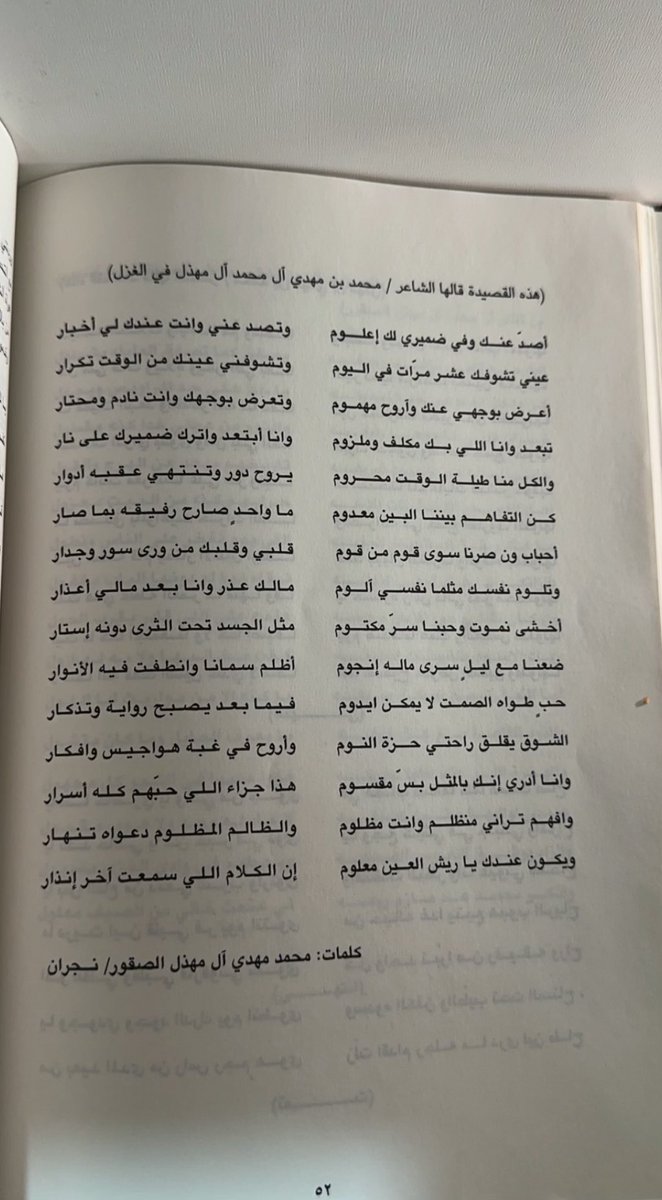 (هذه القصيدة قالها الشاعر / محمد بن مهدي آل محمد آل مهذل في الغزل)
أصدّ عنك وفي ضميري لك إعلوم وتصد عني وانت عندك لي أخبار
عيني تشوفك عشر مرّات في اليوم وتشوفني عينك من الوقت تكرار
أعرض بوجهي عنك وآروح مهموم وتعرض بوجهك وانت نادم ومحتار
تبعد وانا اللي بك مكلف وملزوم وانا أبتعد واترك ضميرك على نار
والكل منا طيلة الوقت محروم يروح دور وتنتهي عقبه أدوار
كن التفاهم بيننا البين معدوم ما واحدٍ صارح رفيقه بما صار
أحباب ون صرنا سوى قوم من قوم قلبي وقلبك من ورى سور وجدار
وتلوم نفسك مثلما نفسي ألوم مالك عذر وانا بعد مالي أعذار
أخشى نموت وحبنا سرّ مكتوم مثل الجسد تحت الثرى دونه إستار
ضعنا مع ليلٍ سرى ماله إنجوم أظلم سمانا وانطفت فيه الأنوار
حبٍ طواه الصمت لا يمكن ايدوم فيما بعد يصبح رواية وتذكار
الشوق يقلق راحتي حزة النوم وأروح في غبة هواجيس وافكار
وانا أدري إنك بالمثل بسّ مقسوم هذا جزاء اللي حبّهم كله أسرار
وافهم تراني منظلم وانت مظلوم والظالم المظلوم دعواه تنهار
ويكون عندك يا ريش العين معلوم إن الكلام اللي سمعت آخر إنذار
كلمات: محمد مهدي آل مهذل الصقور/ نجران
٥٢